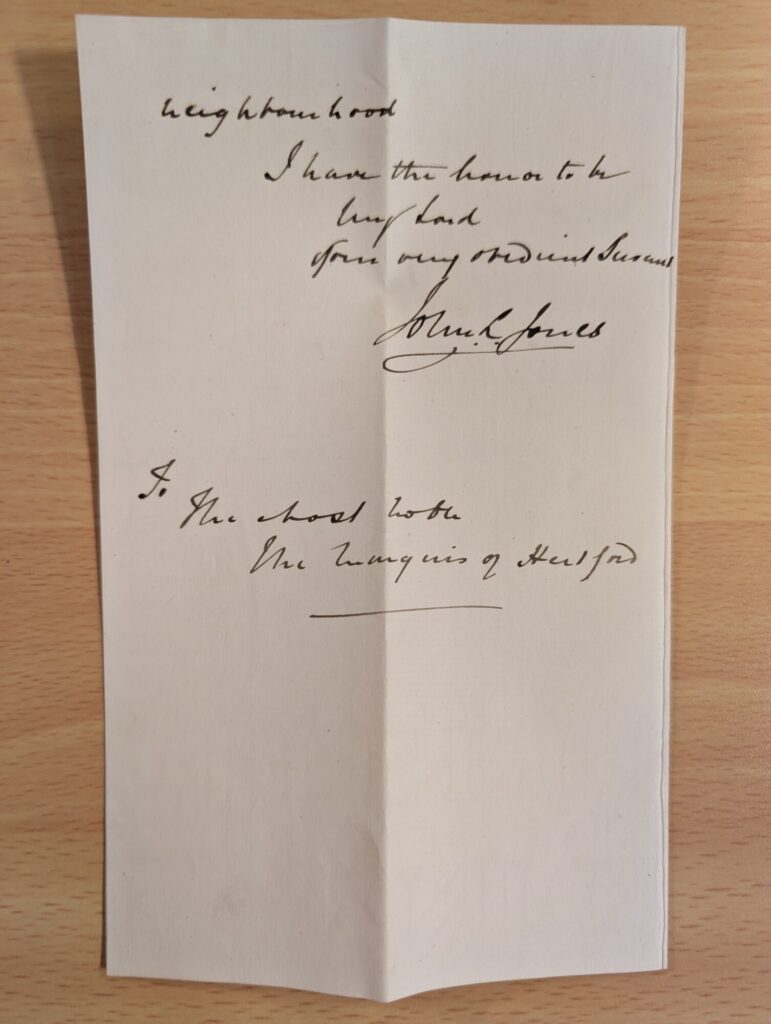 neighbourhood
I have the honor to be
My Lord
Your very obedient Servant
John L. Jones
To
The Most Noble
The Marquis of Hertford